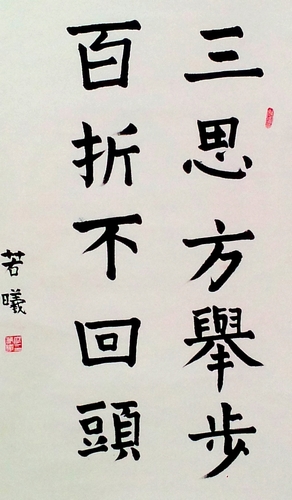 三思方舉步
百折不回頭
若曦